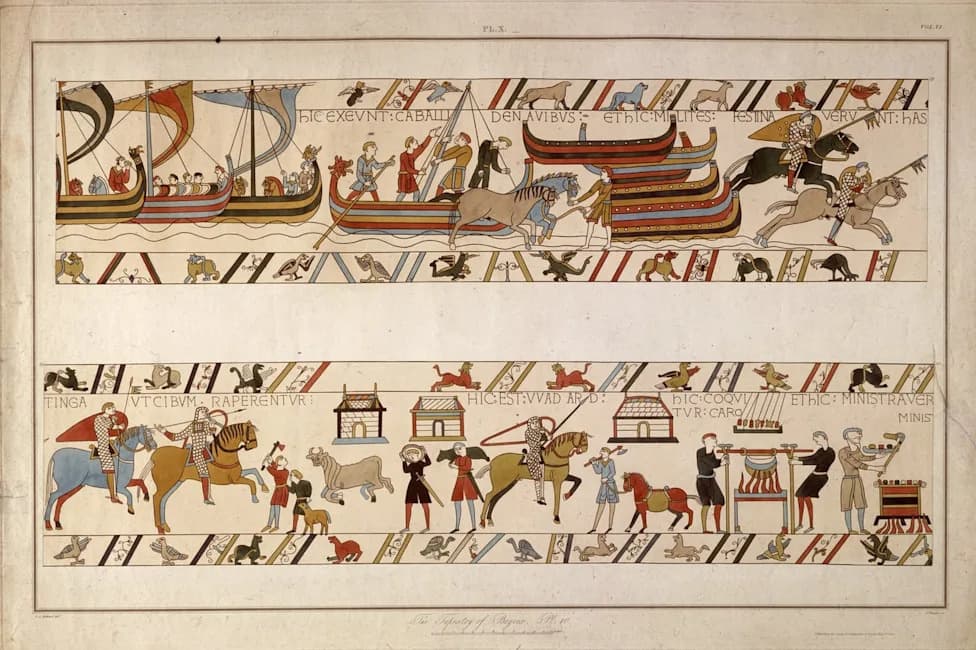 PL.X.
VOL.VI.
hIC EXEVNT: CABALLI DENAVIBVS:- ET hIC: MILITES: FESTINA VERVNT: hAS
TINGA VT CIBVM· RAPERENTVR:
HIC·EST: VVAD ARD:
hIC: COQVI
TVR: CARO
ET hIC· MINISTRAVER
MINIS
The Tapestry of Bayeux. Pl. 10.